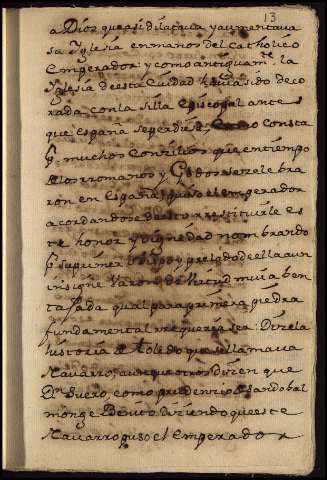 13
a Dios que asi dilataua y aumentaua
su Iglesia en manos del catholico
Emperador y como antiguam.te la
Yglesia de esta Ciudad hauia sido deco
rada con la silla Episcopal antes
que españa se perdiese, como consta
p.r muchos Conzilios que en tiempo
de los romanos y Godos se zelebra
ron en España, quiso el emperador
acordandose de esto rrestituirle es
te honor y dignidad nombrando
p.r su primer obispo y prelado de ella a un
insigne Varon de Virtud mui aben
taxada qual para primera piedra
fundamental rrequeria ser: Dize la
historia de toledo que se llamaua
Nauarro, aunque otros dizen que
D.n Suero, como prudenzio de Sandobal
monge Benito diziendo que este
Nauarro puso el emperador